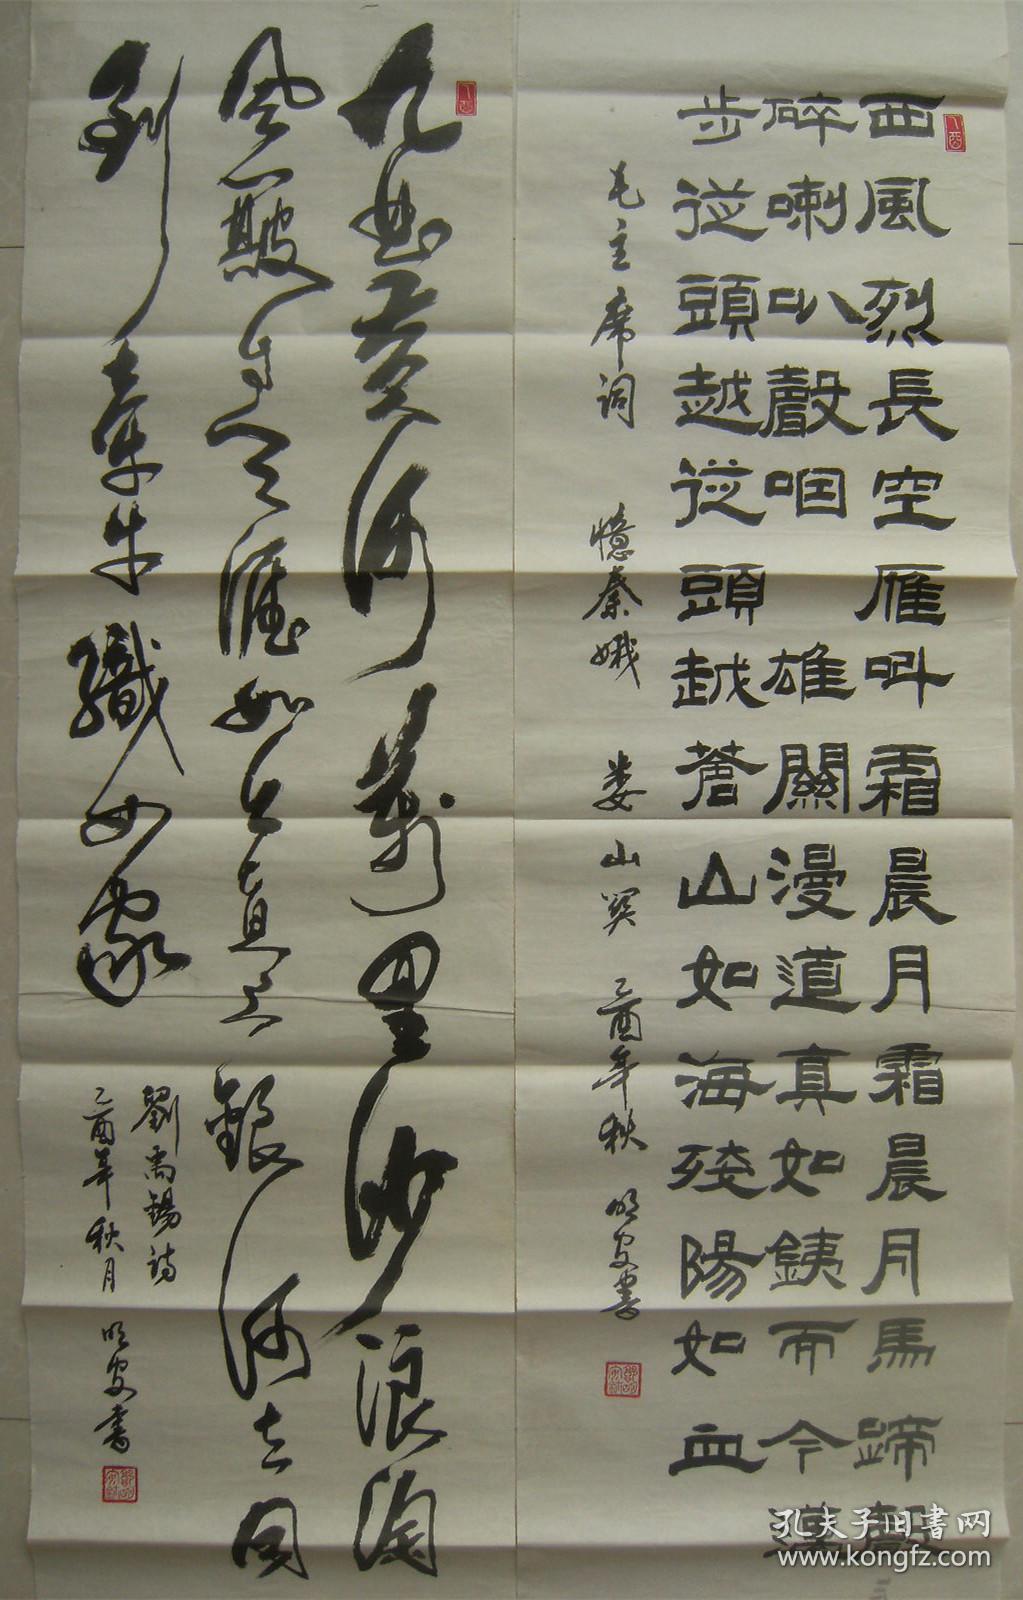 西風烈長空雁叫霜晨月霜晨月馬蹄聲
碎喇叭聲咽 雄關漫道真如鐵而今邁
步從頭越從頭越蒼山如海殘陽如血
毛主席词 憶秦娥 娄山関 乙酉年秋 明安書
九曲黄河萬里沙浪淘
風簸自天涯如今直上銀河去同
到牽牛織女家
劉禹錫詩
乙酉年秋月 明安書
孔夫子旧书网
www.kongfz.com